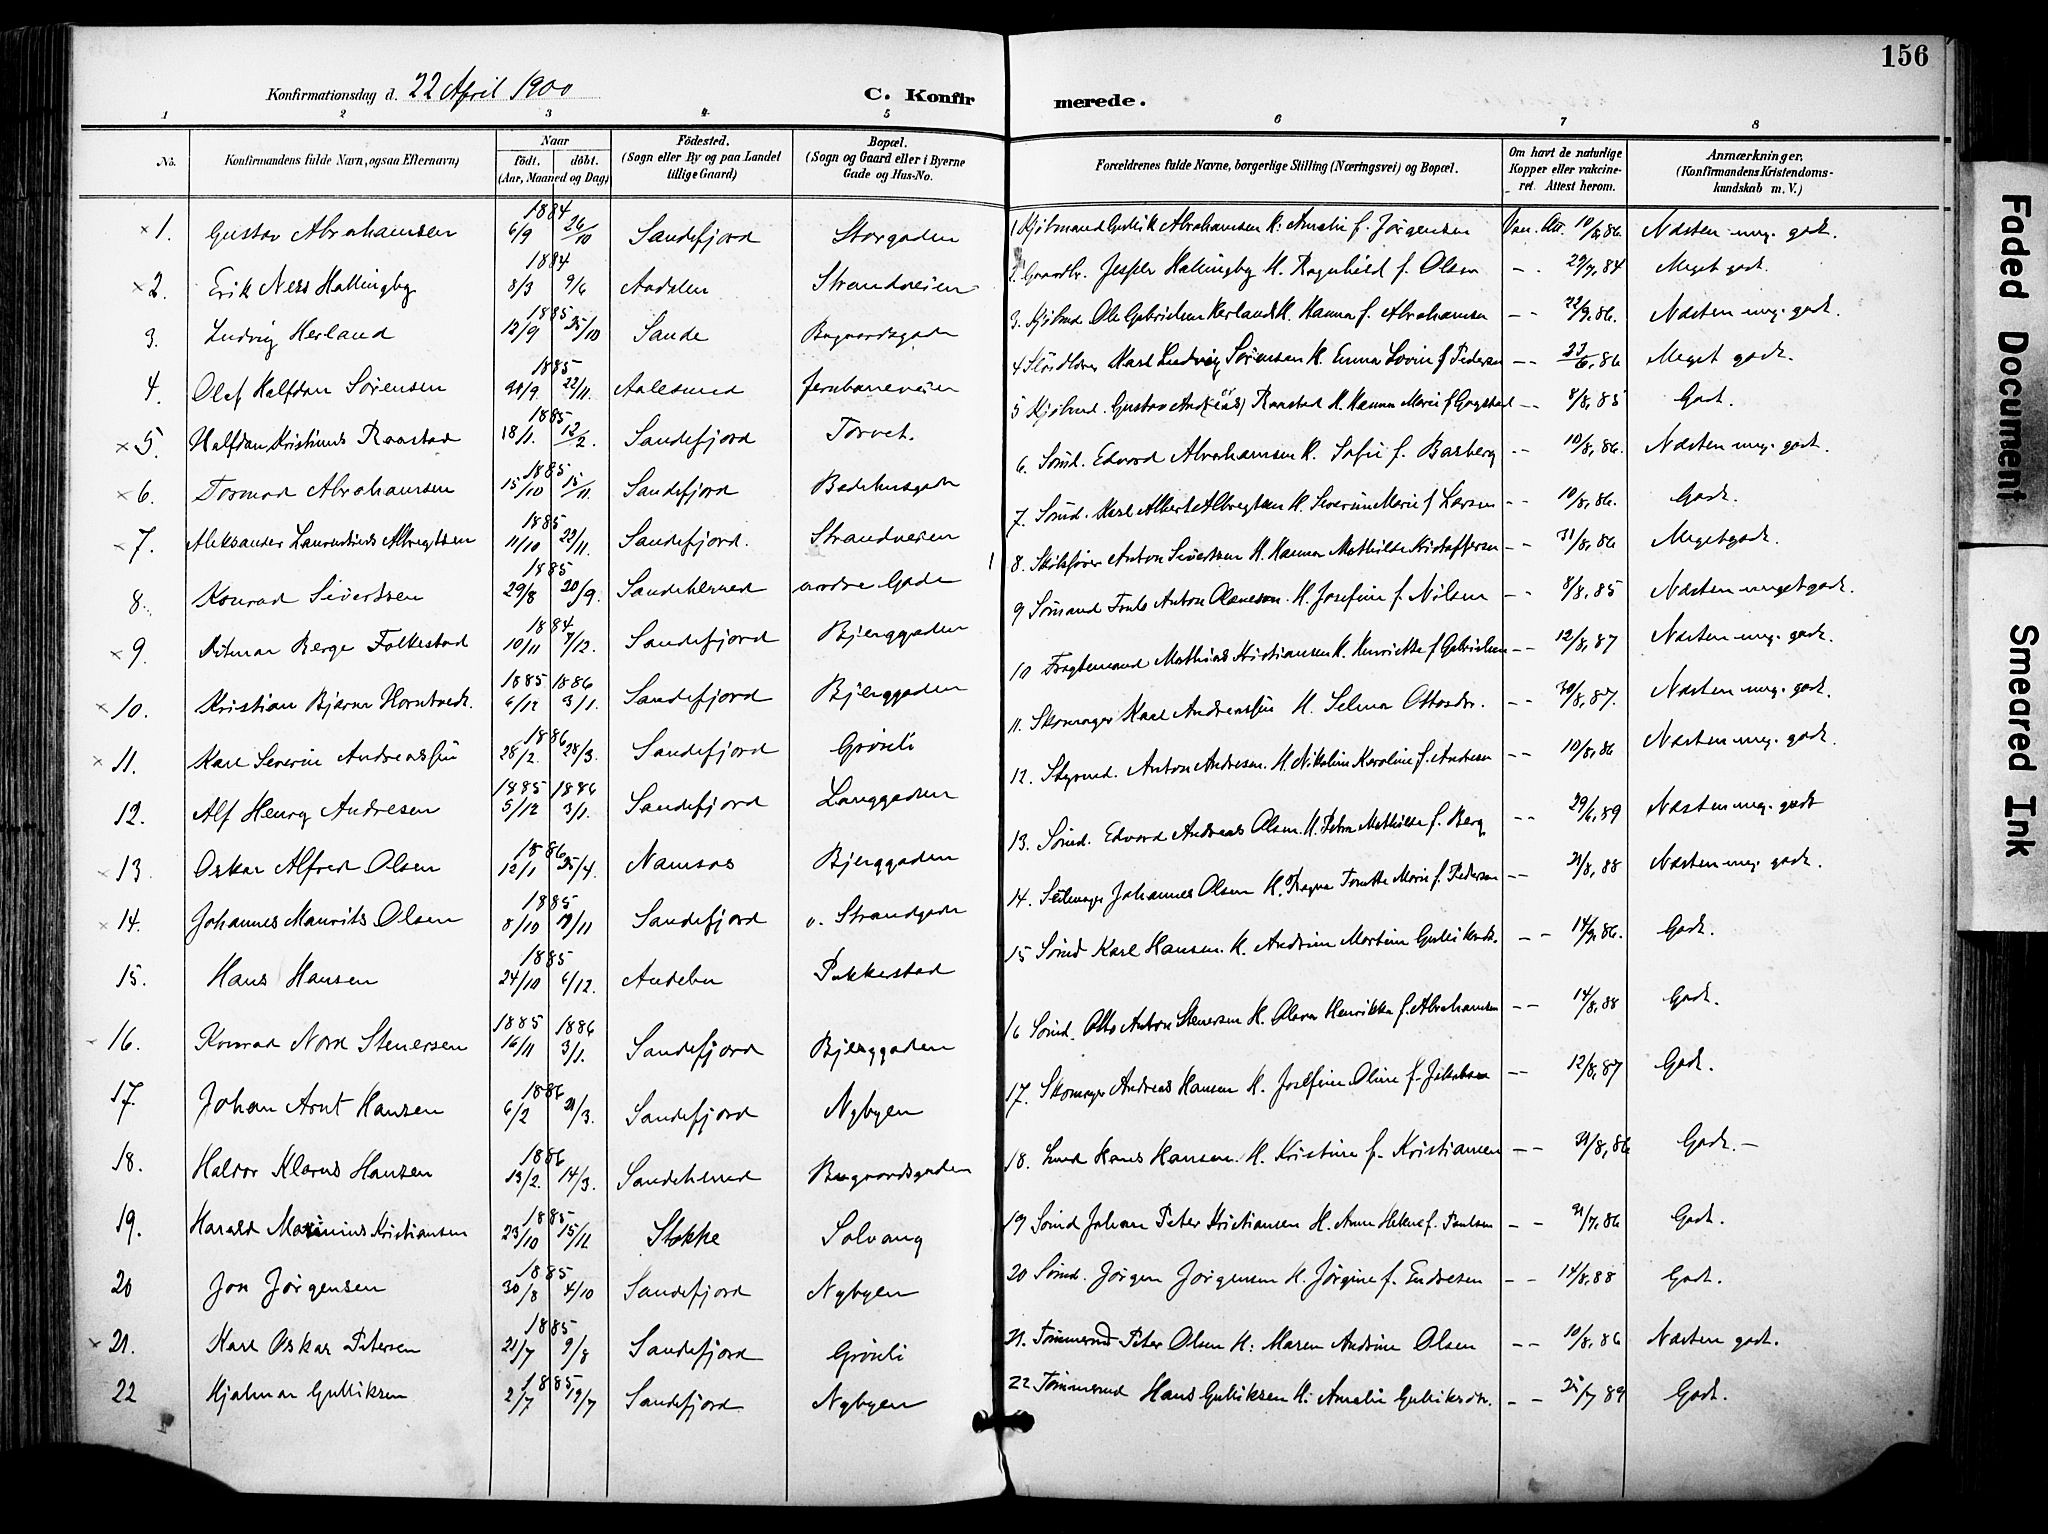 156
Konfirmationsdag d. 22 April 1900
C. Konfirmerede.
1 2 3 4 5 6 7 8
No. Konfirmandens fulde Navn, ogsaa Efternavn) Naar født. døbt. (Aar, Maaned og Dag) Födested. (Sogn eller By og paa Landet tillige Gaard) Bopæl. (Sogn og Gaard eller i Byerne Gade og Hus-No. Forældrenes fulde Navne, borgerlige Stilling (Næringsvei) og Bopæl. Om havt de naturlige Kopper eller vakcineret. Attest herom. Anmærkninger. (Konfirmandens Kristendomskundskab m.V.)
×1. Gustav Abrahamsen 1884 6/9 26/10 Sandefjord Storgaden 1 Kjøbmand Gullik Abrahamsen H. Amalie f. Jörgensen Vac. Att. 10/8, 86 Næsten meg. godt.
×2. Erik Ness Hallingby 1884 8/3 9/6 Aadalen Strandveien 2. Gaardbr. Jesper Hallingby H. Ragnhild f. Olsen - - 29/7, 84 Meget godt.
3. Ludvig Herland 1885 12/9 25/10 Sande Bugaardsgade 3. Kjøbmd. Ole Gabrielsen Herland H. Hanna f. Abrahamsen - - 22/9, 86. Næsten meg. godt.
4. Olaf Halfdan Sørensen 1885 20/9 22/11. Aalesund Jernbaneveien 4 Karl Ludvig Sørensen H. Emma Lovise f Pedersen - - 23/6, 86 Meget godt.
×5. Halfdan Kristinus Raastad 1885 18/1. 12/2. Sandefjord Torvet. 5 Kjøbmd. Gustav Andreas Raastad H. Hanna Marie f Gogstad - - 8/8, 85 Godt.
×6. Tormod Abrahamsen 1885 15/10 15/11. Sandefjord Badehusgade 6. Sømd. Edvard Abrahamsen H. Sofie f. Basberg - - 10/8, 86. Næsten meg. godt.
×7. Aleksander Laurentius Albregtsen 1885 11/10 29/11. Sandefjord. Strandveien 7. Sømd. Karl Albert Albregtsen H. Severine Marie f Larsen - - 10/8, 86. Godt.
8. Konrad Sivertsen 1885 29/8 20/9. Sandeherred nordre Gade 8. Skibsfører Anton Sivertsen H. Hanna Mathilde Kristoffersen - - 31/8, 86 Meget godt.
×9. Ditmar Berge Falkestad 1884 10/11 7/12. Sandefjord Bjerggaden 9 Sømand Anton Olavesen H. Josefine f. Nilsen - - 8/8, 85 Næsten meget godt.
×10. Kristian Bjarne Horntvedt. 1885 6/12 1886 3/1. Sandefjord Bjerggaden 10 Fragtemand Mathias Kristiansen H. Henriette f Gabrielsen - - 12/8, 87 Næsten meg. godt.
×11. Karl Severin Andreassen 1886 28/2. 28/3. Sandefjord Grønli 11. Skomager Karl Andreassen H. Selma Ottosdtr. - - 30/8, 87. Næsten meg. godt.
12. Alf Henry Andresen 1885 5/12 1886 3/1. Sandefjord Langgaden 12. Styrmd. Anton Andresen. H. Nikoline Karoline f. Andresen - - 10/8, 86 Næsten meg. godt.
×13. Oskar Alfred Olsen 1886 12/1 25/4. Namsos Bjerggaden 13. Sømd. Edvard Andreas Olsen. H. Petra Mathilde f. Berg - - 29/6, 89 Næsten meg. godt
×14. Johannes Maurits Olsen 1885 8/10 29/11 Sandefjord v. Strandgade 14. Seilmager Johannes Olsen H. Ragna Tomette Marie f. Pedersen - - 21/8, 88 Næsten meg. godt.
15. Hans Hansen 1885 24/10 6/12. Andebu Pukkestad 15 Sømd Karl Hansen. H. Andrine Martine Gulliksdtr. - - 14/9, 86. Godt.
16. Konrad Nord Stenersen 1885 16/11 1886 3/1. Sandefjord Bjerggaden 16 Sømd. Otto Anton Stenersen H. Olava Henrikka f. Abrahamsen - - 14/8, 88 Godt.
17. Johan Arnt Hansen 1886 6/2 21/3. Sandefjord Nybyen 17. Skomager Andreas Hansen H. Josefine Oline f. Jakobsen - - 12/8, 87 Godt.
18. Haldor Klarus Hansen 1886 13/2. 14/3. Sandeherred Bugaardsgaden 18. Hans Hansen. H. Kristine f. Kristiansen - - 31/8, 86 Godt. -
19. Harald Maximius Kristiansen 1885 23/10 15/11 Stokke Solvang 19 Sømd Johan Peter Kristiansen H. Anne Helene f. Paulsen - - 21/7, 86 Godt.
20 Jon Jørgensen 1885 30/8 4/10 Sandefjord Nybyen 20 Sømd. Jørgen Jørgensen H. Jørgine f. Endresen - - 14/8, 88 Godt.
×21. Karl Oskar Petersen 1885 21/7 9/8 Sandefjord Grønli 21. Tømmermd Peter Olsen H: Maren Andrine Olsen - - 10/8, 86 Næsten godt.
22 Hjalmar Gulliksen 1885 2/7 19/7 Sandefjord. Nybyen 22 Tømmermd Hans Gulliksen H: Amalie Gulliksdtr. - - 25/7 89 Godt.
Faded Document
Smeared Ink